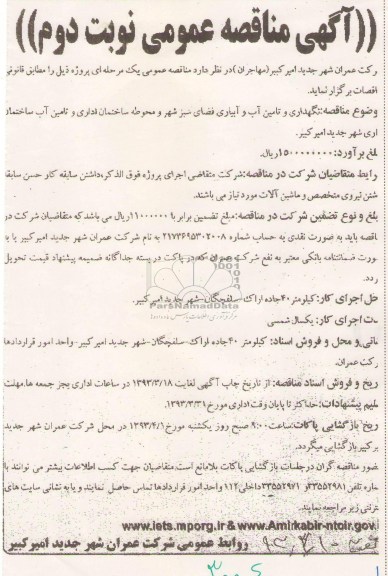 ((آگهی مناقصه عمومی نوبت دوم))
رکت عمران شهر جدید امیرکبیر(مهاجران)در نظر دارد مناقصه عمومی یک مرحله‌ای پروژه ذیل را مطابق قانونی
اقصات برگزار نماید.
وضوع مناقصه:نگهداری و تامین آب و آبیاری فضای سبز شهر و محوطه ساختمان اداری و تامین آب ساختمان
اری شهر جدید امیرکبیر.
لغ برآورد:
رایط متقاضیان شرکت در مناقصه:شرکت متقاضی اجرای پروژه فوق الذکر،داشتن سابقه کار حسن سابقه
شتن نیروی متخصص و ماشین آلات مورد نیاز می باشند.
بلغ و نوع تضمین شرکت در مناقصه:مبلغ تضمین برابر با ۱۱۰۰۰۰۰۰ریال می باشد که متقاضیان شرکت در
ناقصه باید به صورت نقدی به حساب شماره ۲۱۷۳۶۹۵۳۰۲۰۰۸ به نام شرکت عمران شهر جدید امیرکبیر یا به
ورت ضمانتنامه بانکی معتبر به نفع شرکت عمران که در پاکت در بسته جداگانه ضمیمه پیشنهاد قیمت تحویل
ردد.
حل اجرای کار: کیلومتر ۴۰جاده اراک-سلفچگان-شهر جدید امیرکبیر.
دت اجرای کار: یکسال شمسی
مانی و محل و فروش اسناد: کیلومتر ۴۰جاده اراک-سلفچگان-شهر جدید امیرکبیر-واحد امور قراردادها
رکت عمران.
ریخ و فروش اسناد مناقصه: از تاریخ چاپ آگهی لغایت ۱۳۹۳/۳/۱۸ در ساعات اداری بجز جمعه ها.مهلت
لیم پیشنهادات:حداکثر تا پایان وقت اداری مورخ ۱۳۹۳/۳/۳۱
ریخ بازگشایی پاکات:ساعت ۹:۰۰ صبح روز یکشنبه مورخ ۱۳۹۳/۴/۱ در محل شرکت عمران شهر جدید
یرکبیر بازگشایی میگردد.
ضور مناقصه گران در جلسات بازگشایی پاکات بلامانع است.متقاضیان جهت کسب اطلاعات بیشتر می توانند با
ماره تلفن ۳۳۵۵۲۹۸۱و ۳۳۵۵۲۹۷۱داخلی۱۱۲ واحد امور قراردادها تماس حاصل نمایند و یا به نشانی سایت های
ترنتی زیر مراجعه نمایند.
www.iets.mporg.ir & www.Amirkabir-ntoir.gov
روابط عمومی شرکت عمران شهر جدید امیرکبیر
ParsNamadData